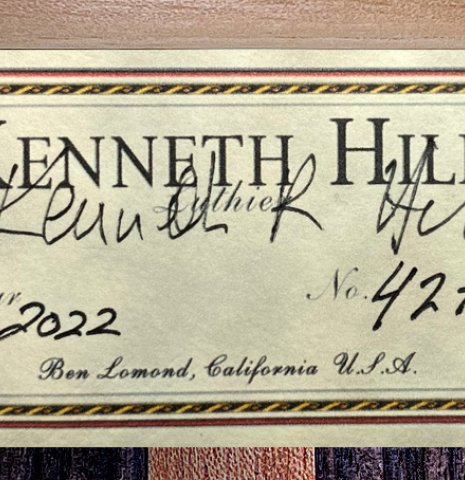 KENNETH HILL
Luthier
Kenneth R Hill
No. 42
2022
Ben Lomond, California U.S.A.